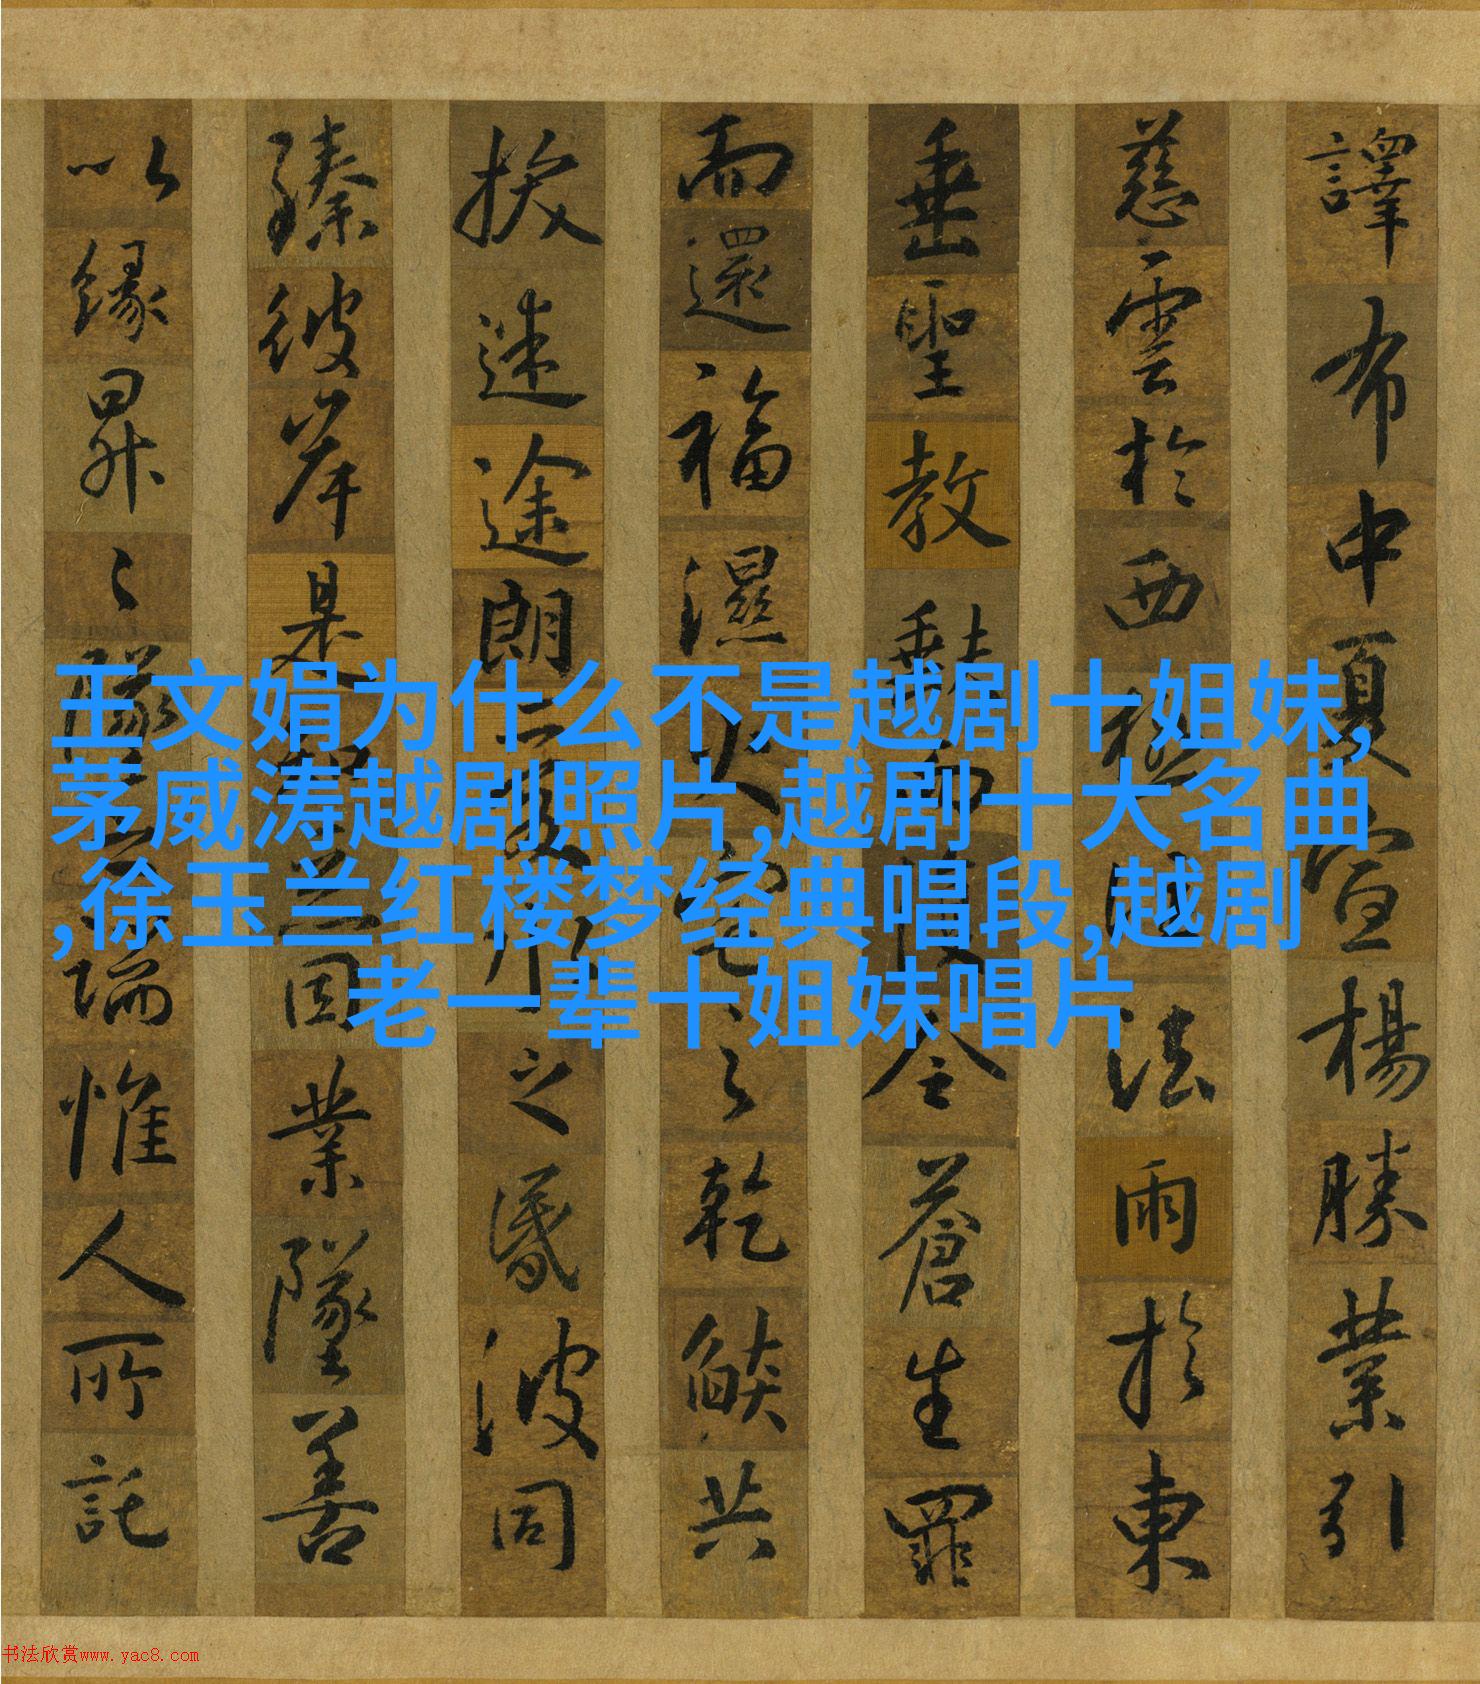 王文娟为什么不是越剧十姐妹,
茅威涛越剧照片,越剧十大名曲
,徐玉兰红楼梦经典唱段,越剧
老一辈十姐妹唱片
譯布中夏宣楊勝業引
慈雲於西極法雨於東
垂聖教全蒼生罪
而還福濕火宅之乾燄共
拔迷途朗之昏波同
臻彼岸是因業墜善
以緣昇々墜端惟人所託
书法欣赏www.yac8.com